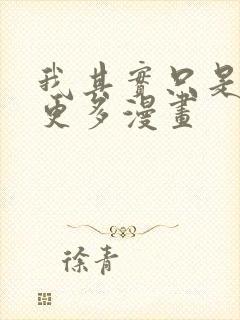 我其實只是
更多漫畫
徐青